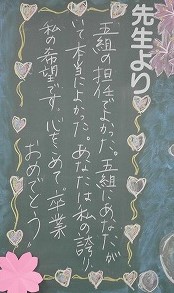 先生より
五組の担任でよかった。五組にあなたが
いて本当によかった。あなたは私の誇り、
私の希望です。心をこめて、卒業
おめでとう。